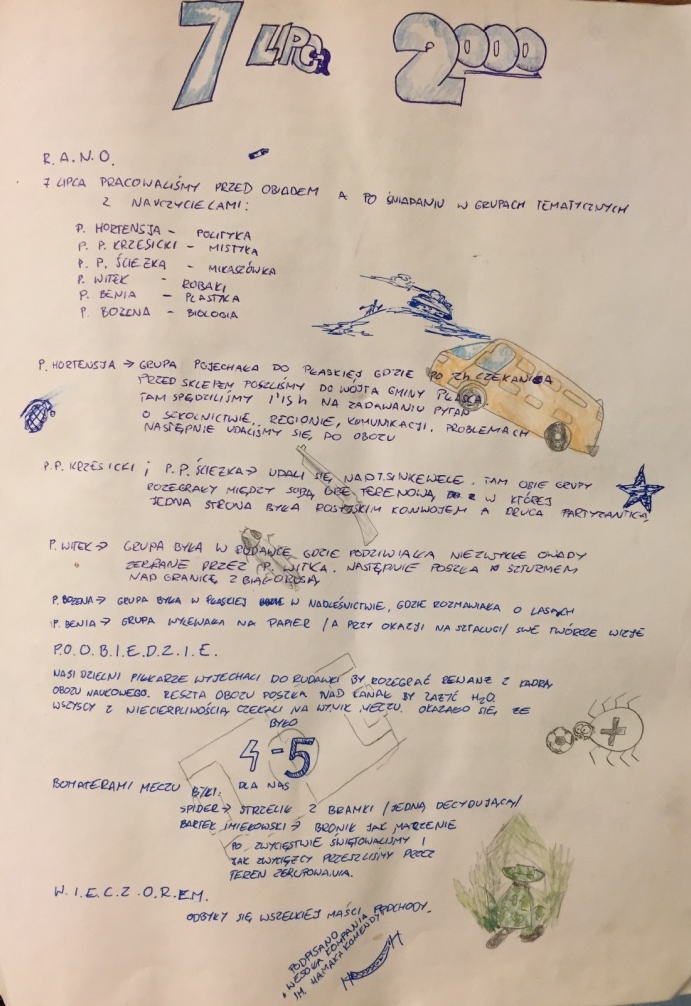 7 LIPCA 2000
R.A.N.O.
7 LIPCA PRACOWALIŚMY PRZED OBIADEM A PO ŚNIADANIU W GRUPACH TEMATYCZNYCH
Z NAUCZYCIELAMI:
P. HORTENSJA - POLITYKA
P. P. KRZESICKI - MISTYKA
P. P. ŚCIEZKA - MIKASZÓWKA
P. WITEK - ROBAKI
P. BENIA - PLASTYKA
P. BOZENA - BIOLOGIA
P. HORTENSJA → GRUPA POJECHAŁA DO PŁASKIEJ GDZIE PO CZEKANIU
PRZED SKLEPEM POSZLIŚMY DO WÓJTA GMINY PŁASKA
TAM SPĘDZILIŚMY 1'15 H NA ZADAWANIU PYTAŃ
O SZKOLNICTWIE, REGIONIE, KOMUNIKACJI, PROBLEMACH
NASTĘPNIE UDALIŚMY SIĘ DO OBOZU
P.P. KRZESICKI i P.P. ŚCIEZKA → UDALI SIĘ NAD, TAM OBIE GRUPY
ROZEGRAŁY MIĘDZY SOBĄ GRĘ TERENOWĄ, W KTÓREJ
JEDNA STRONA BYŁA ROSYJSKIM KONWOJEM A DRUGA PARTYZANTKĄ
P. WITEK → GRUPA BYŁA W RUDAWCE GDZIE PODZIWIAŁA NIEZWYKŁE OWADY
ZEBRANE PRZEZ P. WITKA. NASTĘPNIE POSZŁA SZTURMEM
NAD GRANICĘ Z BIAŁORUSIĄ
P. BOZENA → GRUPA BYŁA W PŁASKIEJ W NADLEŚNICTWIE, GDZIE ROZMAWIAŁA O LASACH
P. BENIA → GRUPA WYLEWAŁA NA PAPIER /A PRZY OKAZJI NA SZTALUGI/ SWE TWÓRCZE WIZJE
P.O.O.B.I.E.D.Z.I.E.
NASI DZIELNI PIŁKARZE WYJECHALI DO RUDAWKI BY ROZEGRAĆ REWANZ Z KADRĄ
OBOZU NAUKOWEGO. RESZTA OBOZU POSZŁA NAD KANAŁ BY ZAZYĆ H₂O.
WSZYSCY Z NIECIERPLIWOŚCIĄ CZEKALI NA WYNIK MECZU. OKAZAŁO SIĘ, ZE
BYŁO
4-5
DLA NAS
BOHATERAMI MECZU BYLI:
SPIDER → STRZELIŁ 2 BRAMKI /JEDNĄ DECYDUJĄCĄ/
BARTEK ŚMIEKOWSKI → BRONIŁ JAK MARZENIE
PO ZWYCIĘSTWIE ŚWIĘTOWALIŚMY I
JAK ZWYCIĘZCY PRZESZLIŚMY PRZEZ
TEREN ZGRUPOWANIA.
W.I.E.C.Z.O.R.E.M.
ODBYŁY SIĘ WSZELKIEJ MAŚCI PODCHODY.
PODPISANO
WESOŁA KOMPANIA
IM. HAMAKA KOMENDY